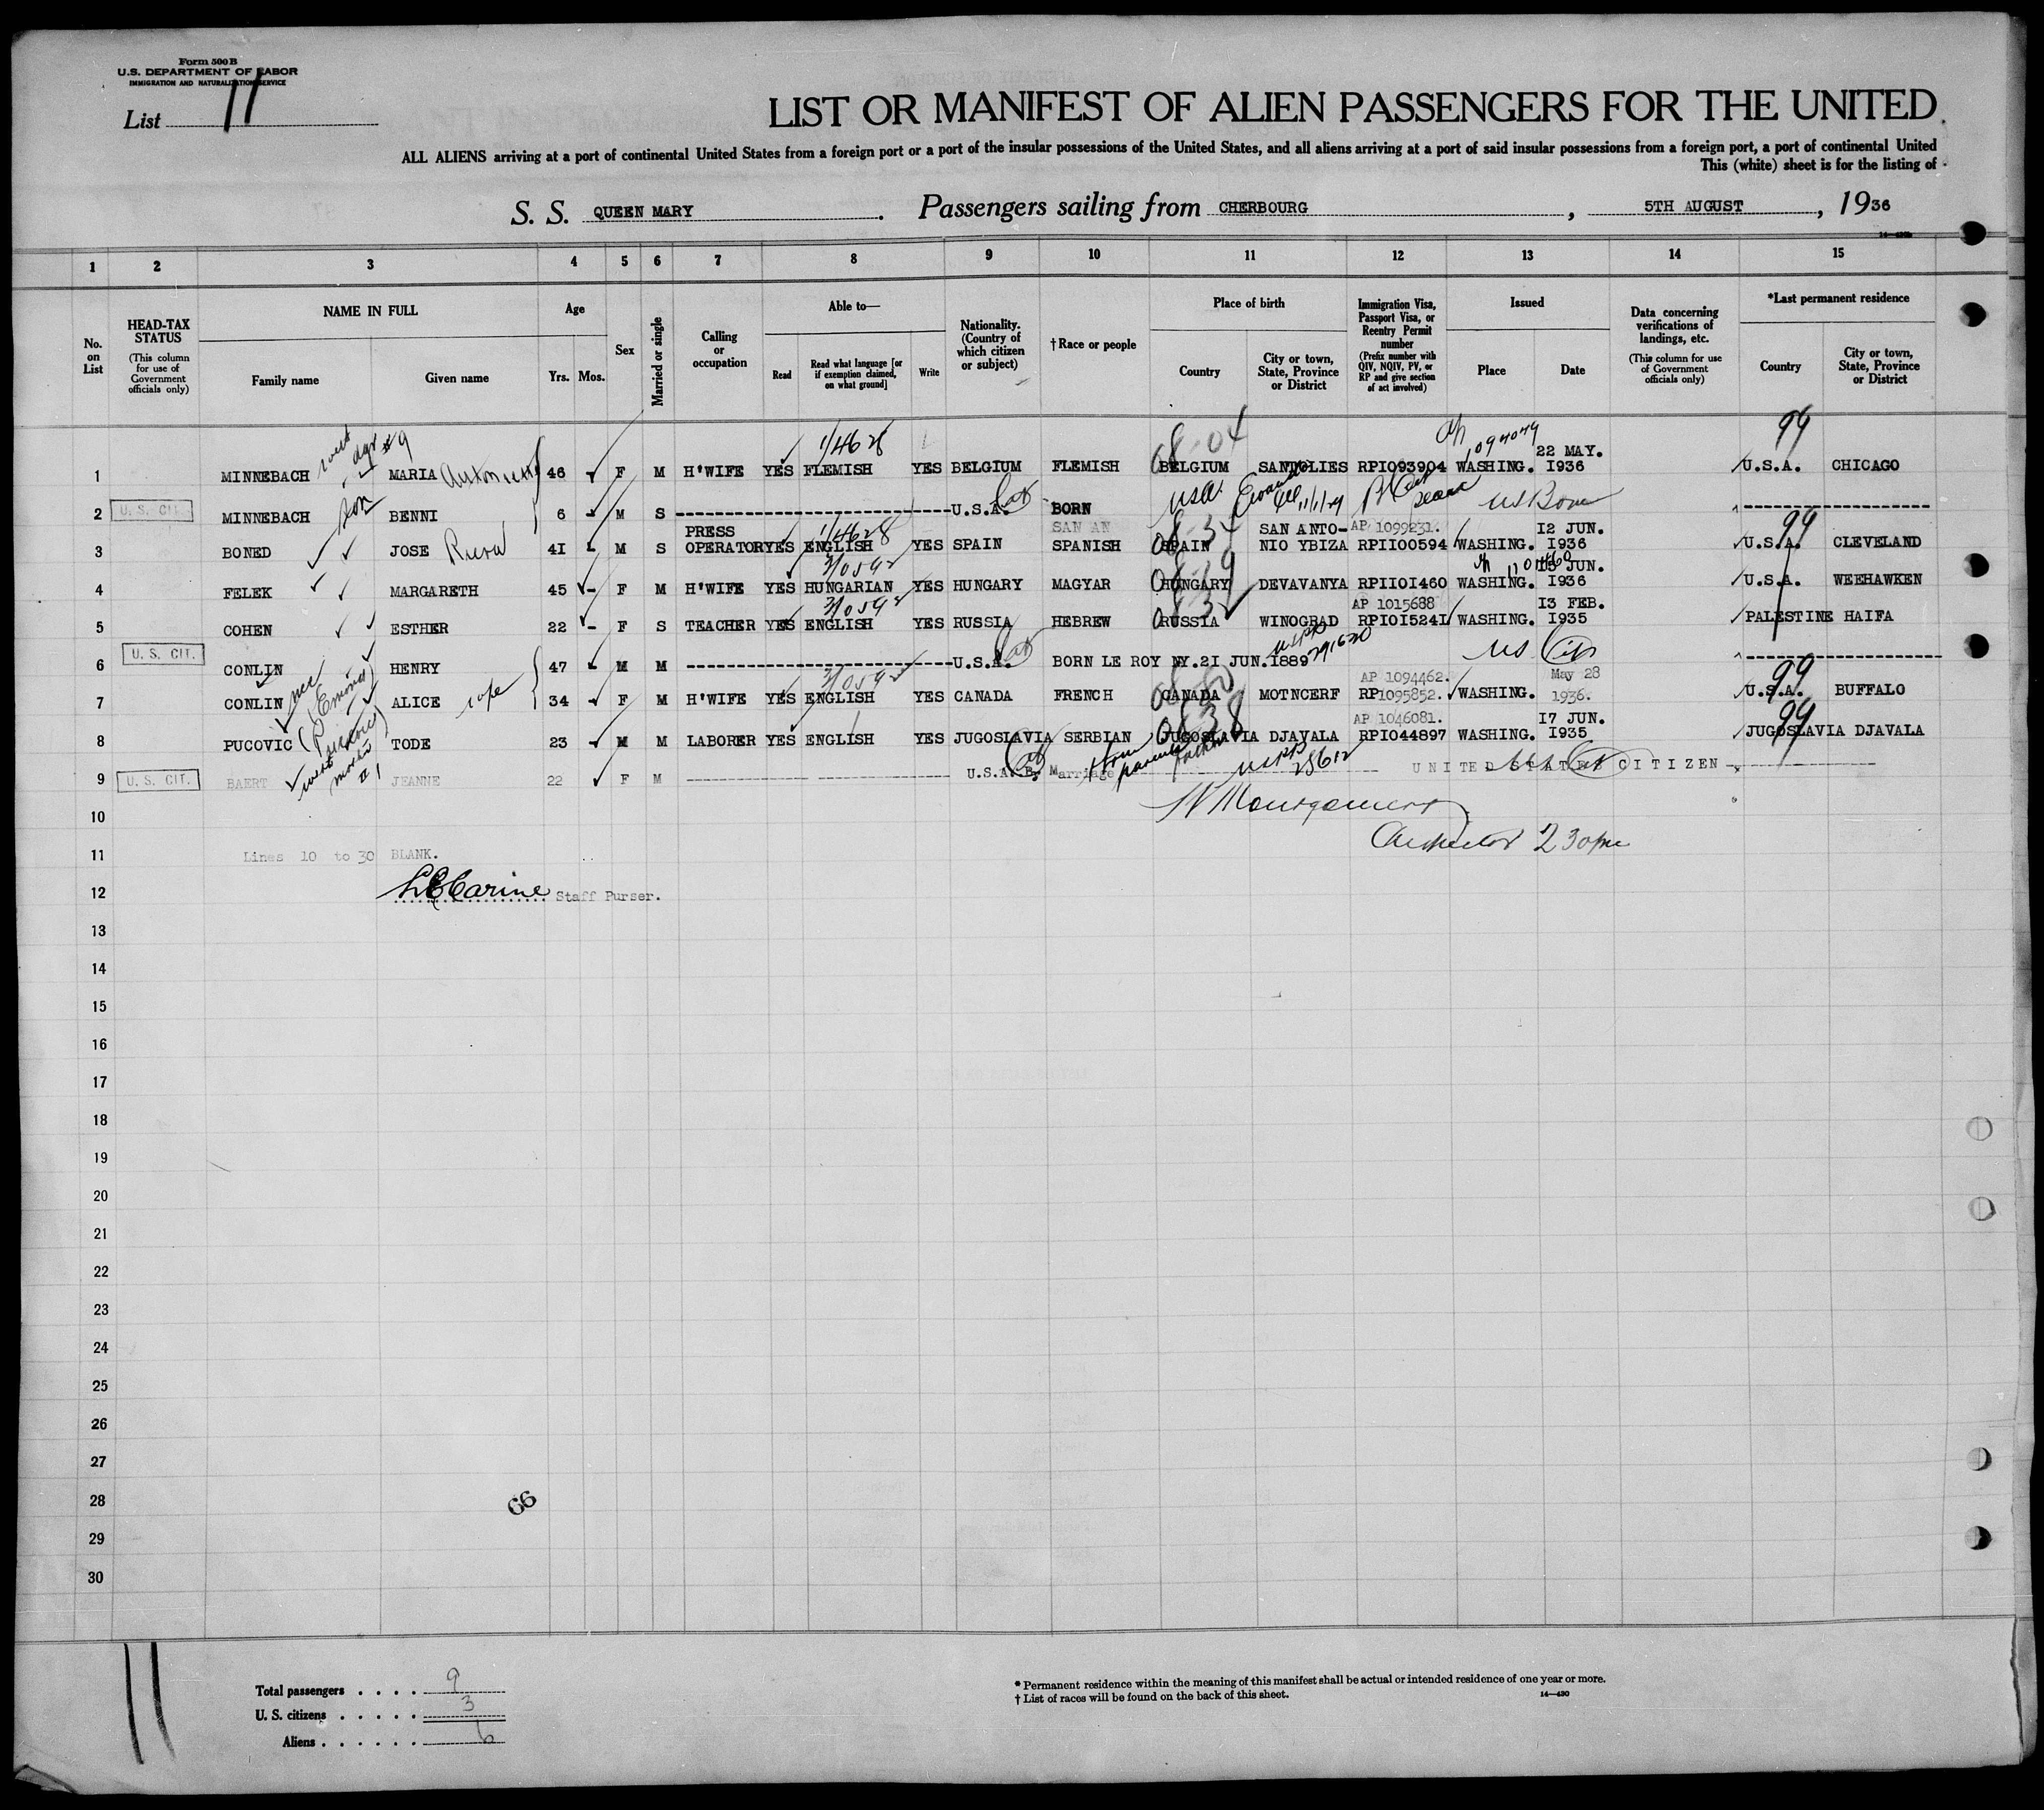 Form 500 B
U.S. DEPARTMENT OF LABOR
IMMIGRATION AND NATURALIZATION SERVICE
List 11
LIST OR MANIFEST OF ALIEN PASSENGERS FOR THE UNITED
ALL ALIENS arriving at a port of continental United States from a foreign port or a port of the insular possessions of the United States, and all aliens arriving at a port of said insular possessions from a foreign port, a port of continental United
This (white) sheet is for the listing of
S. S. QUEEN MARY. Passengers sailing from CHERBOURG, 5TH AUGUST, 1936
1 2 3 4 5 6 7 8 9 10 11 12 13 14 15
No. on List
HEAD-TAX STATUS
(This column for use of Government officials only)
NAME IN FULL
Family name Given name
Age
Yrs. Mos.
Sex
Married or single
Calling or occupation
Able to—
Read
Read what language [or if exemption claimed, on what ground]
Write
Nationality. (Country of which citizen or subject)
†Race or people
Place of birth
Country
City or town, State, Province or District
Immigration Visa, Passport Visa, or Reentry Permit number
(Prefix number with QIV, NQIV, PV, or RP and give section of act involved)
Issued
Place Date
Data concerning verifications of landings, etc.
(This column for use of Government officials only)
*Last permanent residence
Country
City or town, State, Province or District
1/4628 08-04 1094049 99
22 MAY.
1 MINNEBACH MARIA 46 - F M H'WIFE YES FLEMISH YES BELGIUM FLEMISH BELGIUM RPI093904 WASHING. I936 U.S.A. CHICAGO
2 U. S. CIT. MINNEBACH son BENNI 6 - M S U.S.A. BORN USA 11/1/29 US Born
PRESS 1/4628 SAN AN 08-34 SAN ANTO- AP 1099231. I2 JUN. 99
3 BONED JOSE 4I - M S OPERATOR YES ENGLISH YES SPAIN SPANISH SPAIN NIO YBIZA RPII00594 WASHING. I936 U.S.A. CLEVELAND
JUN.
4 FELEK MARGARETH 45 - F M H'WIFE YES HUNGARIAN YES HUNGARY MAGYAR HUNGARY DEVAVANYA RPII0I460 WASHING. I936 U.S.A. WEEHAWKEN
AP 1015688 I3 FEB.
5 COHEN ESTHER 22 - F S TEACHER YES ENGLISH YES RUSSIA HEBREW RUSSIA WINOGRAD RPI0I524I WASHING. I935 PALESTINE HAIFA
6 U. S. CIT. CONLIN HENRY 47 - M M U.S.A. BORN LE ROY NY. 2I JUN. I889 291620 US Cit
AP 1094462. May 28 99
7 CONLIN ALICE wife 34 - F M H'WIFE YES ENGLISH YES CANADA FRENCH CANADA MOTNCERF RP1095852. WASHING. 1936. U.S.A. BUFFALO
0838 AP 1046081. I7 JUN. 99
8 PUCOVIC TODE 23 - M M LABORER YES ENGLISH YES JUGOSLAVIA SERBIAN JUGOSLAVIA DJAVALA RPI044897 WASHING. I935 JUGOSLAVIA DJAVALA
9 U. S. CIT. BAERT JEANNE 22 F M U.S.A. By Marriage USPP 28612 UNITED STATES CITIZEN
10
W Montgomery
Inspector 2 30pm
11 Lines 10 to 30 BLANK.
12 Staff Purser.
13
14
15
16
17
18
19
20
21
22
23
24
25
26
27
28
66
29
30
11
Total passengers . . . . 9
U. S. citizens . . . . . 3
Aliens . . . . . . 6
* Permanent residence within the meaning of this manifest shall be actual or intended residence of one year or more.
† List of races will be found on the back of this sheet.
14—430